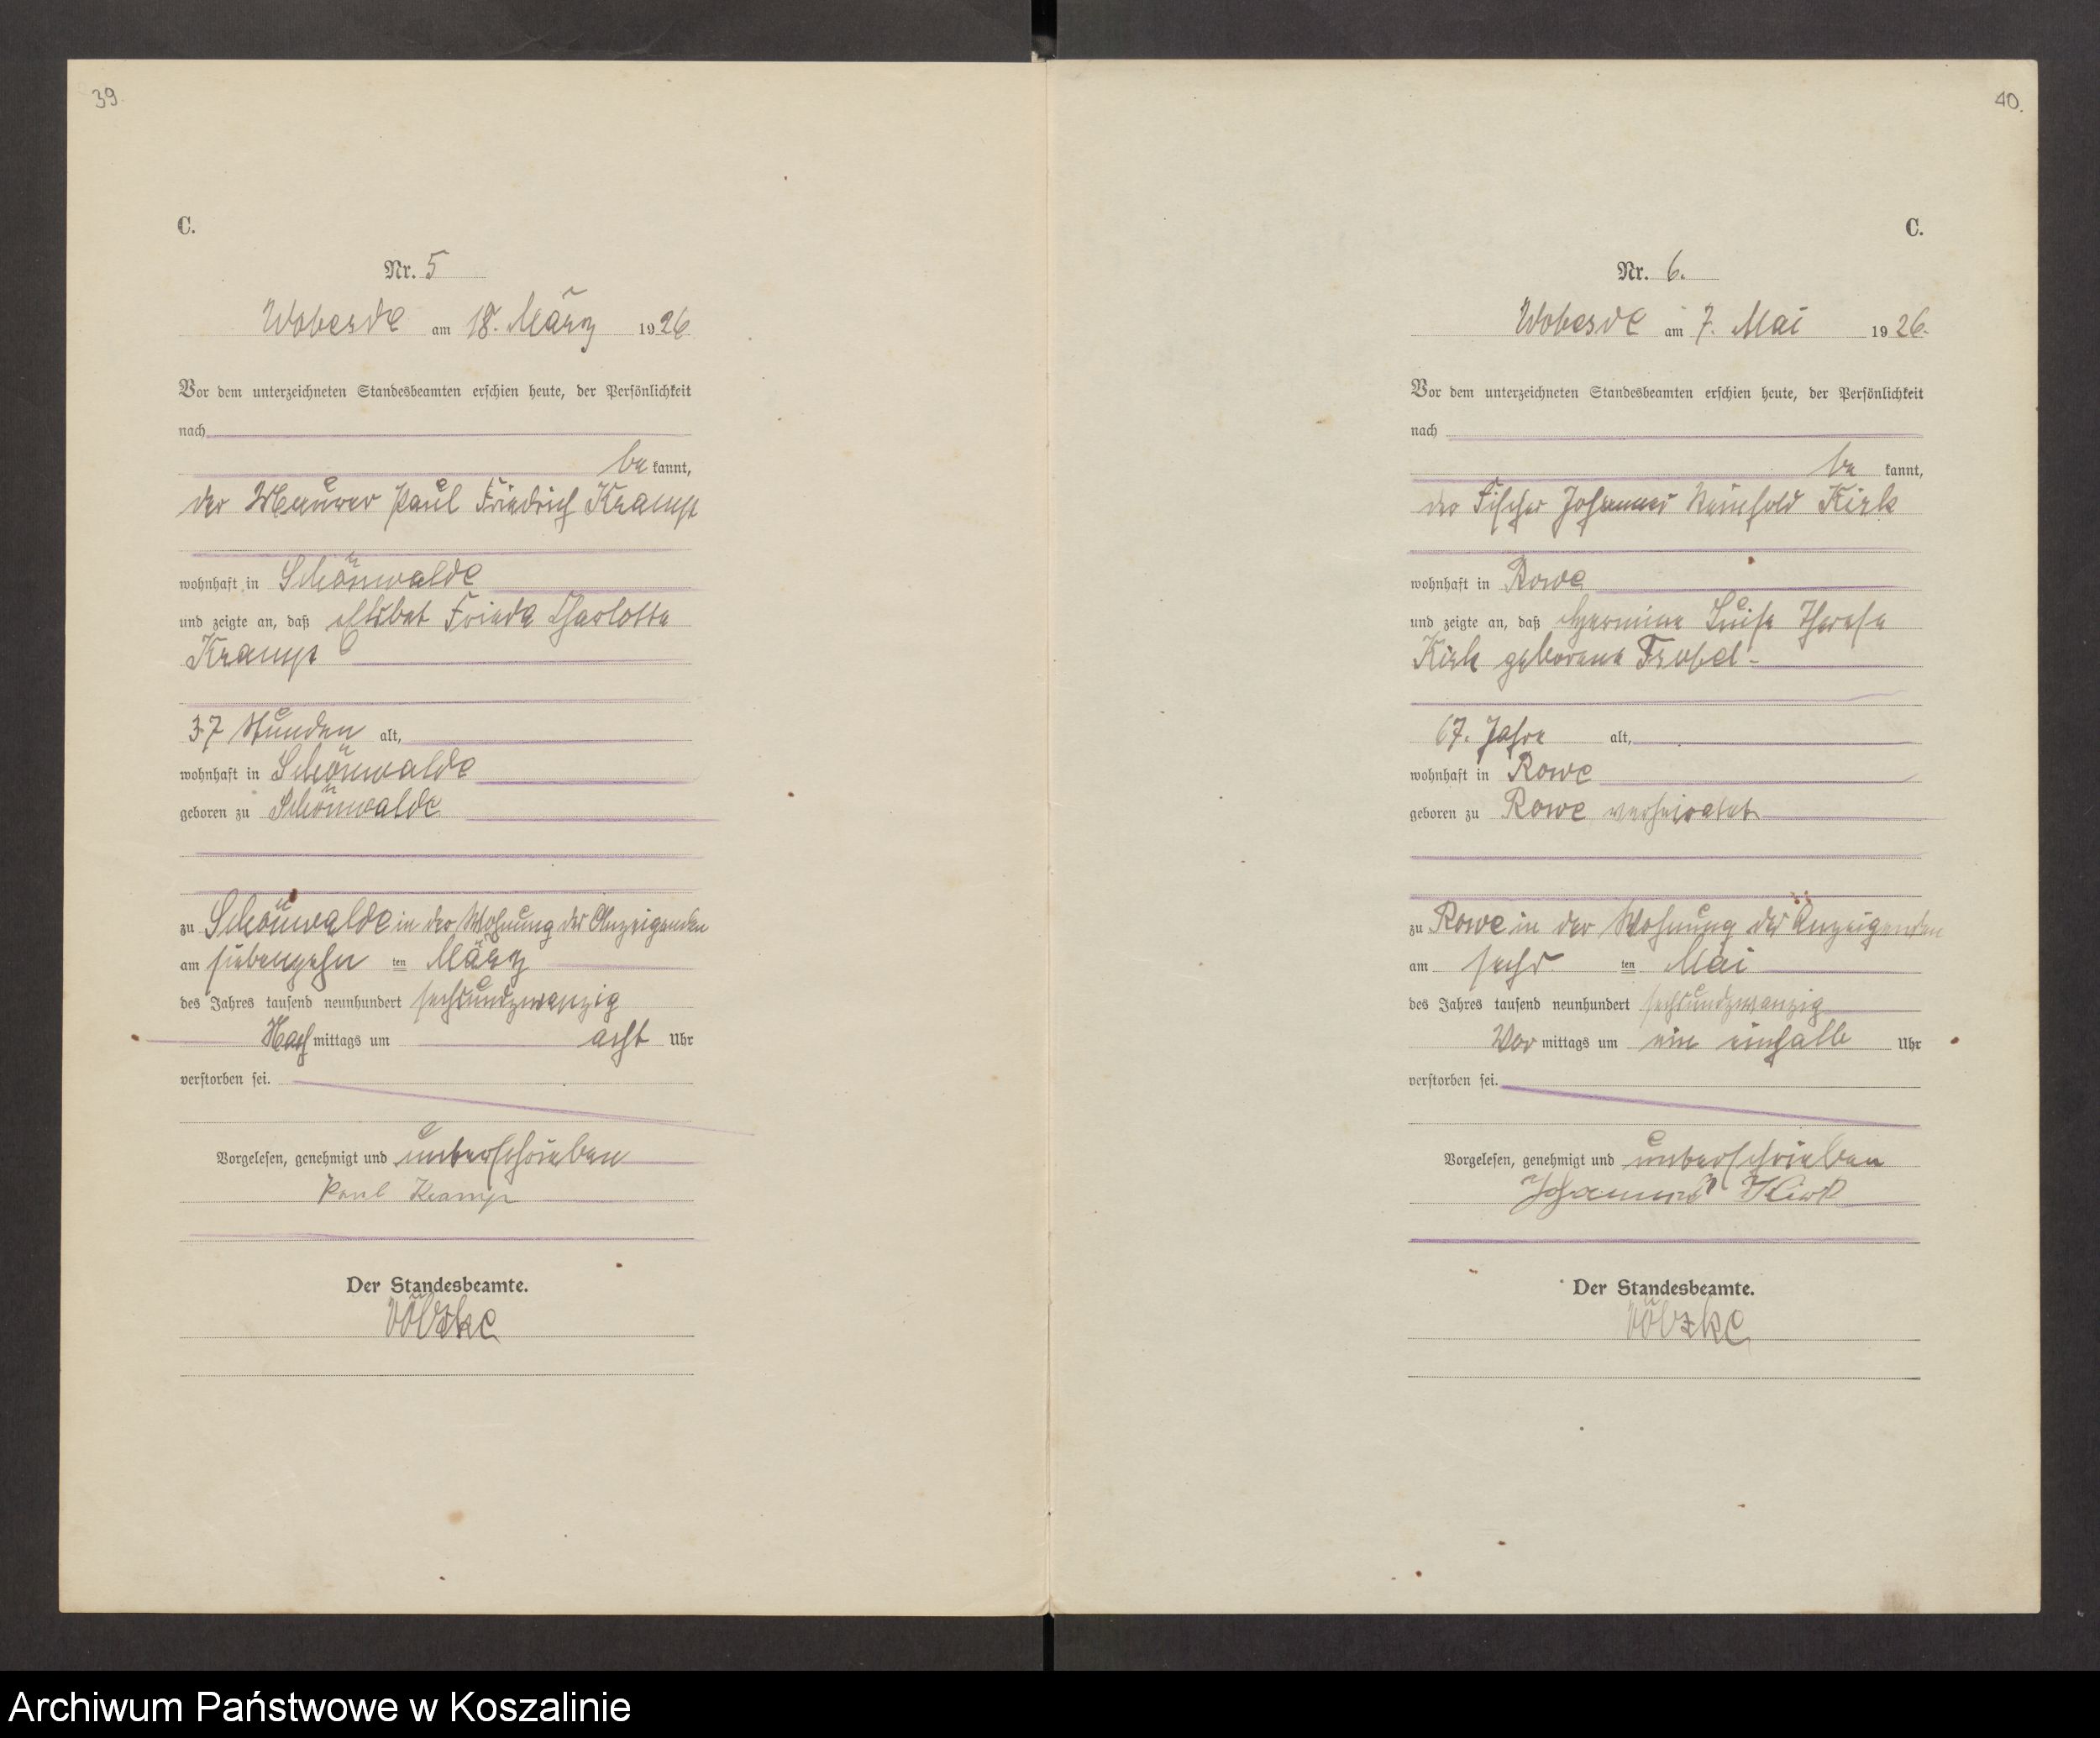 39.
C.
Nr. 5
Wobesde am 18. März 1926
Vor dem unterzeichneten Standesbeamten erschien heute, der Persönlichkeit
nach
be kannt,
der Maurer Paul Friedrich Kramp
wohnhaft in Schönwalde
und zeigte an, daß Elsbet Frieda Charlotte
Kramp
37 Stunden alt,
wohnhaft in Schönwalde
geboren zu Schönwalde
zu Schönwalde in der Wohnung des Anzeigenden
am siebenzehn ten März
des Jahres tausend neunhundert sechsundzwanzig
Nach mittags um acht Uhr
verstorben sei.
Vorgelesen, genehmigt und unterschrieben
Paul Kramp
Der Standesbeamte.
Völzke
40.
C.
Nr. 6.
Wobesde am 7. Mai 1926.
Vor dem unterzeichneten Standesbeamten erschien heute, der Persönlichkeit
nach
be kannt,
der Fischer Johannes Reinhold Kirk
wohnhaft in Rowe
und zeigte an, daß Hermine Luise Therese
Kirk geborene
67. Jahre alt,
wohnhaft in Rowe
geboren zu Rowe verheiratet
zu Rowe in der Wohnung des Anzeigenden
am sechs ten Mai
des Jahres tausend neunhundert sechsundzwanzig
Vor mittags um ein einhalb Uhr
verstorben sei.
Vorgelesen, genehmigt und unterschrieben
Johannes Kirk
Der Standesbeamte.
Völzke
Archiwum Państwowe w Koszalinie